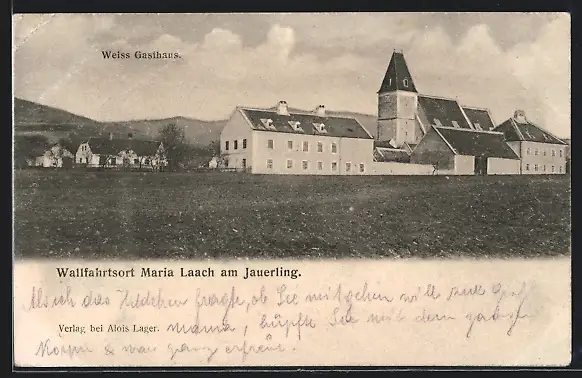 Weiss Gasthaus.
Wallfahrtsort Maria Laach am Jauerling.
Als ich das Mädchen fragte, ob Sie mitgehen will nach Groß
Verlag bei Alois Lager.
mama, hüpfte Sie mit dem ganzen
Körper & war ganz erfreut.